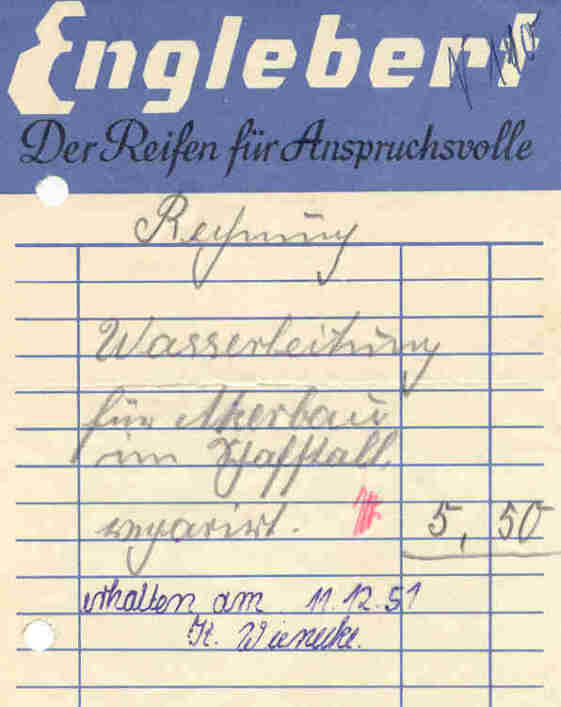 Englebert
Der Reifen für Anspruchsvolle
Rechnung
Wasserleitung
für Akerbau
im Schafstall
reparirt. 5, 50
erhalten am 11.12.51
H. Wienecke.